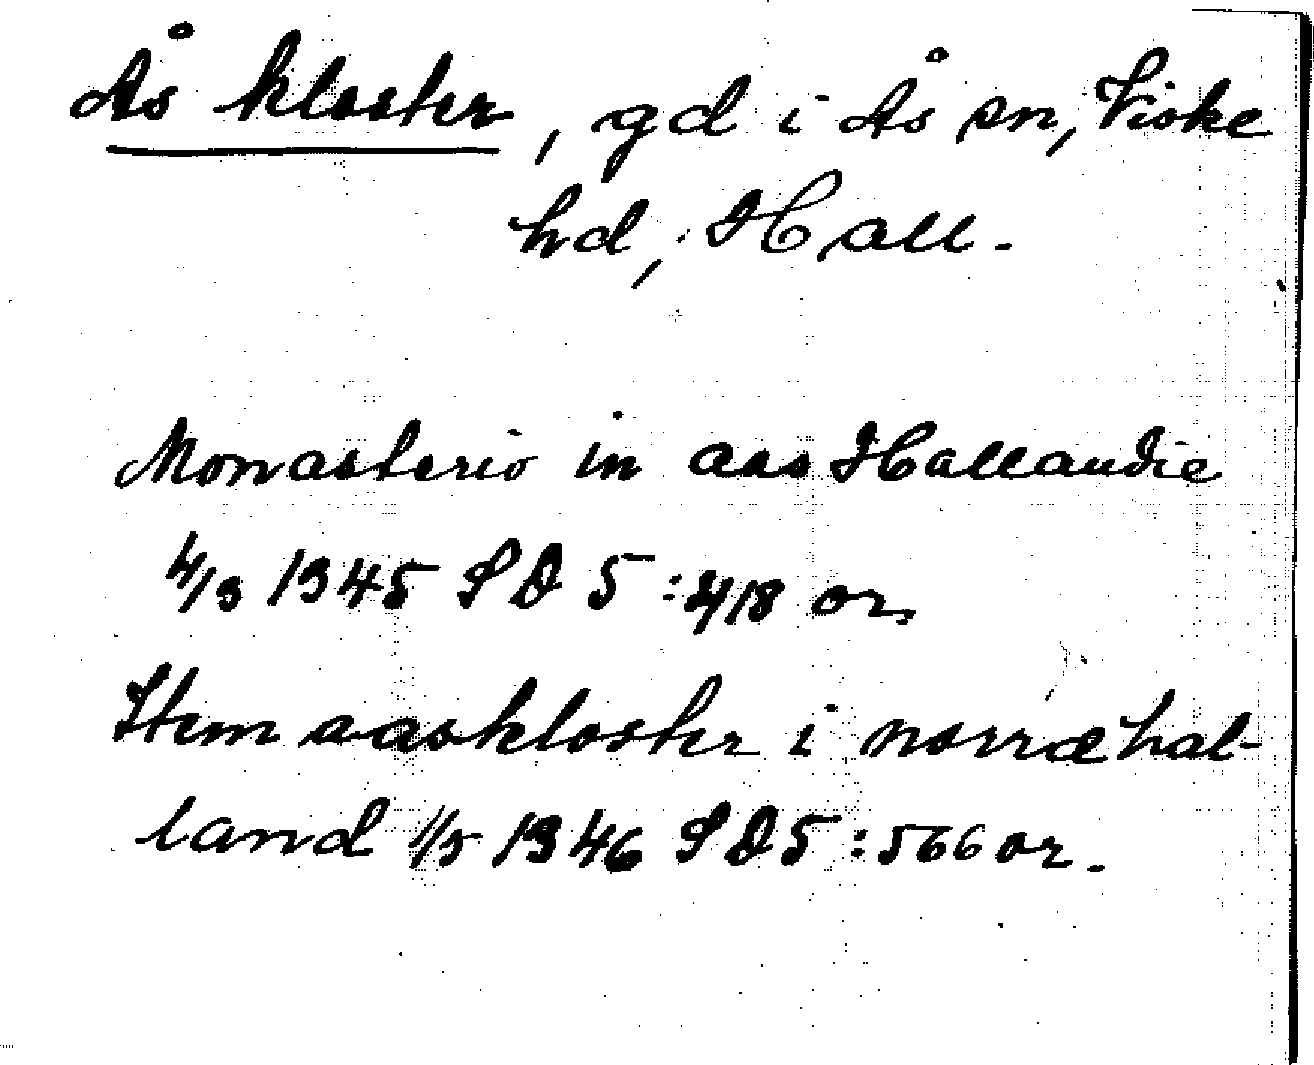 Ås kloster, gd i Ås sn, Viske
hd, Hall.
Monasterio in aas Hallandie
4/3 1345 SD 5:418 or.
Item aaskloster i norræhal-
land 1/5 1346 SD 5:566 or.